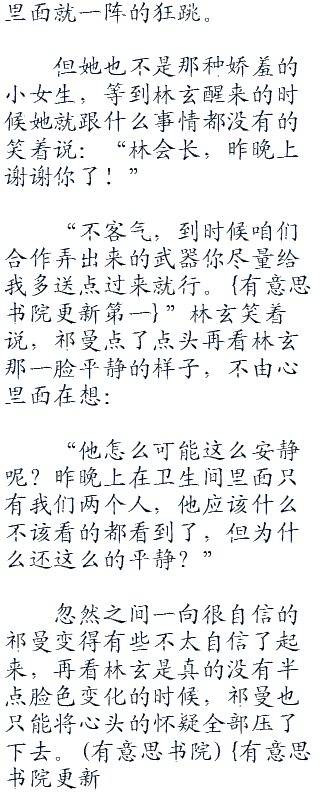 里面就一阵的狂跳。
但她也不是那种娇羞的
小女生，等到林玄醒来的时
候她就跟什么事情都没有的
笑着说：“林会长，昨晚上
谢谢你了！”
“不客气，到时候咱们
合作弄出来的武器你尽量给
我多送点过来就行。{有意思
书院更新第一}”林玄笑着
说，祁曼点了点头再看林玄
那一脸平静的样子，不由心
里面在想：
“他怎么可能这么安静
呢？昨晚上在卫生间里面只
有我们两个人，他应该什么
不该看的都看到了，但为什
么还这么的平静？”
忽然之间一向很自信的
祁曼变得有些不太自信了起
来，再看林玄是真的没有半
点脸色变化的时候，祁曼也
只能将心头的怀疑全部压了
下去。(有意思书院){有意思
书院更新